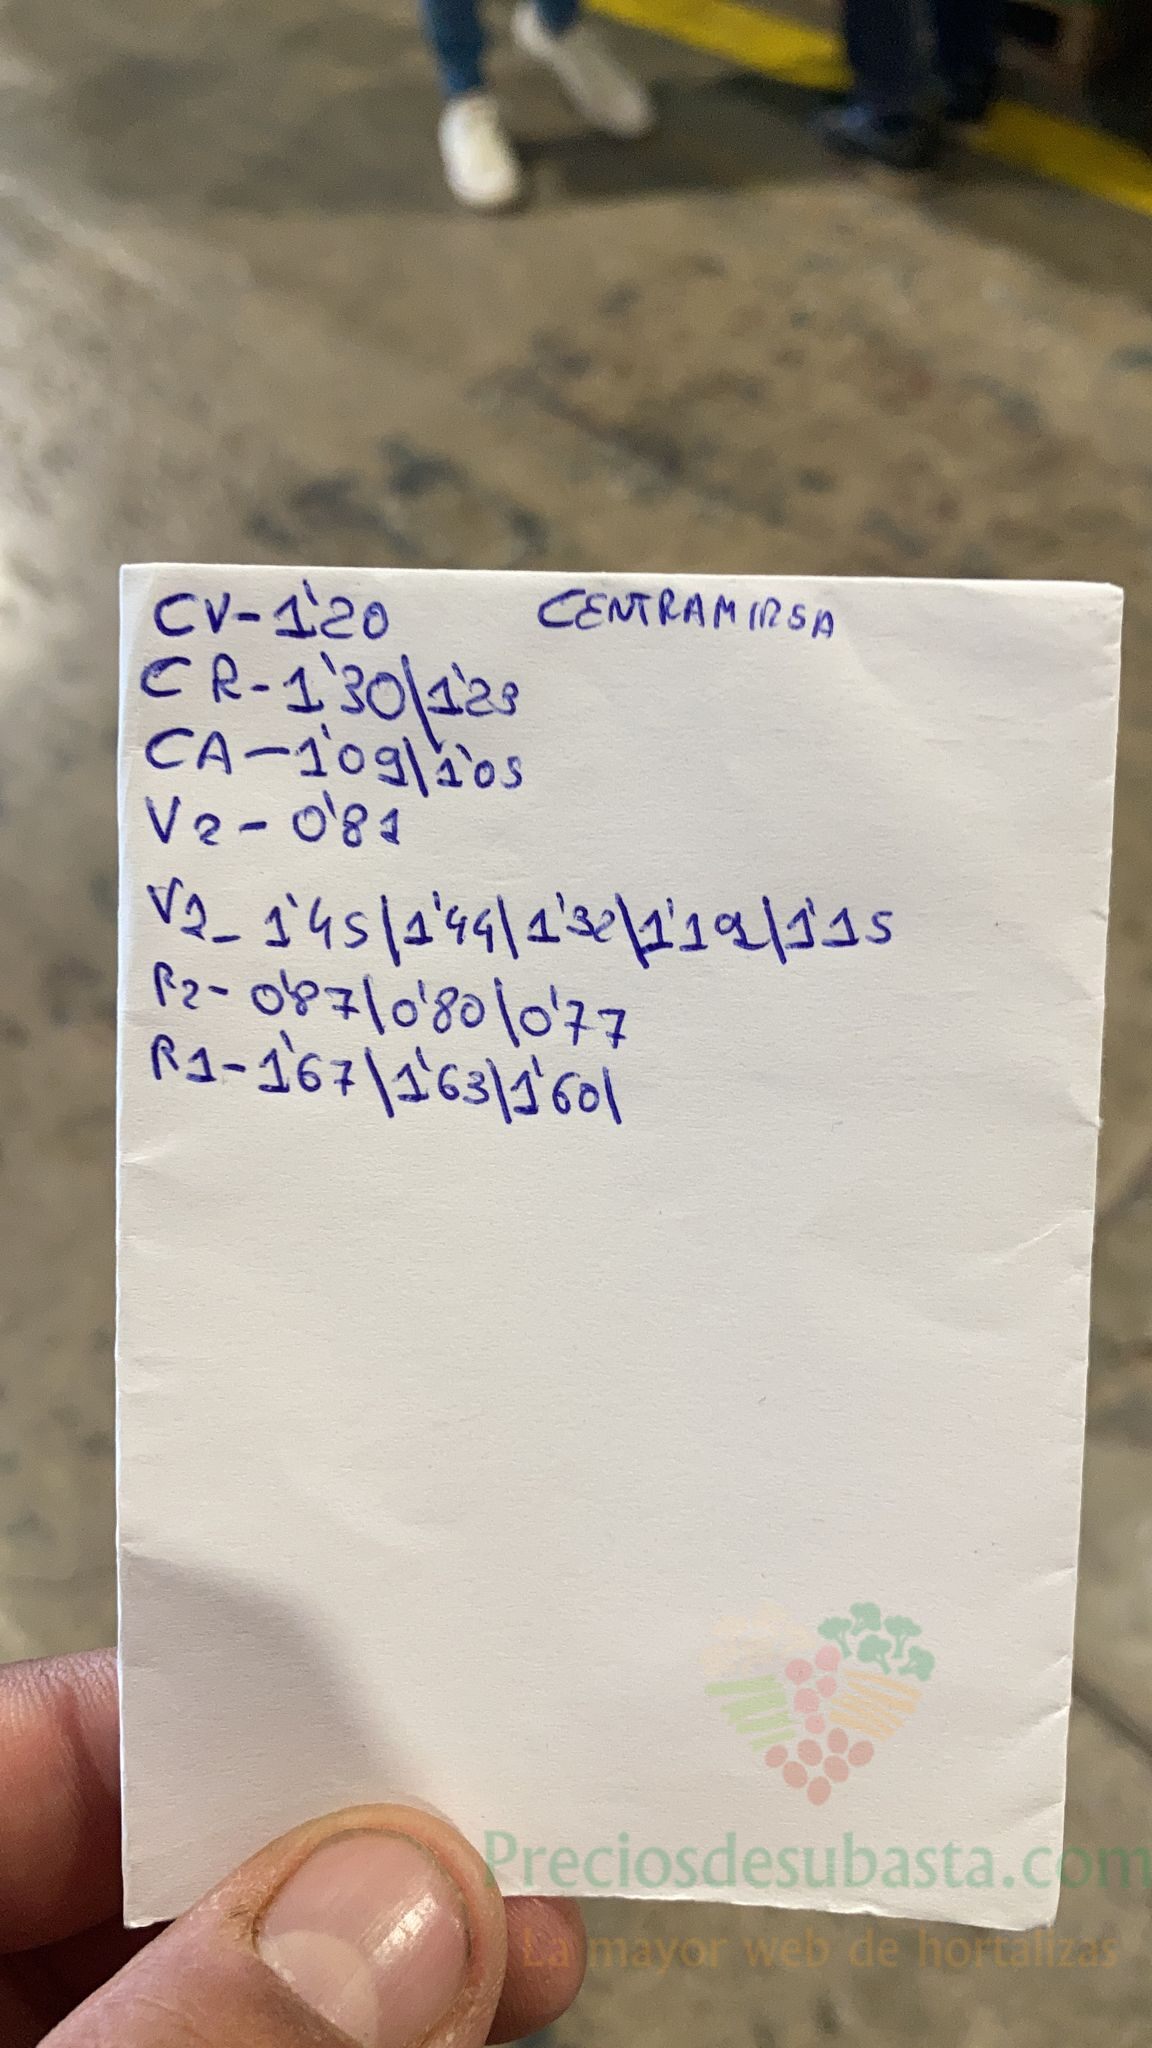 CV-1'20 CENTRAMIRSA
CR-1'30/1'23
CA-1'09/1'05
V2-0'81
V1-1'45/1'44/1'32/1'19/1'15
R2-0'87/0'80/0'77
R1-1'67/1'63/1'60/
Preciosdesubasta.com
La mayor web de hortalizas